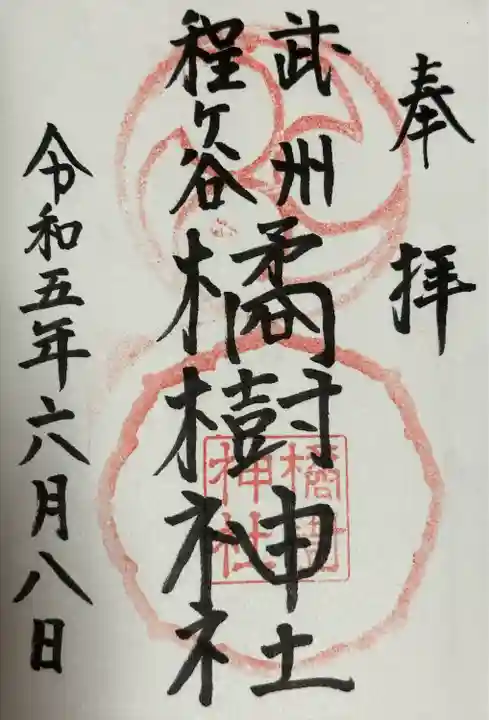 奉拝
武州
程ケ谷
橘樹神社
橘樹
神社
令和五年六月八日